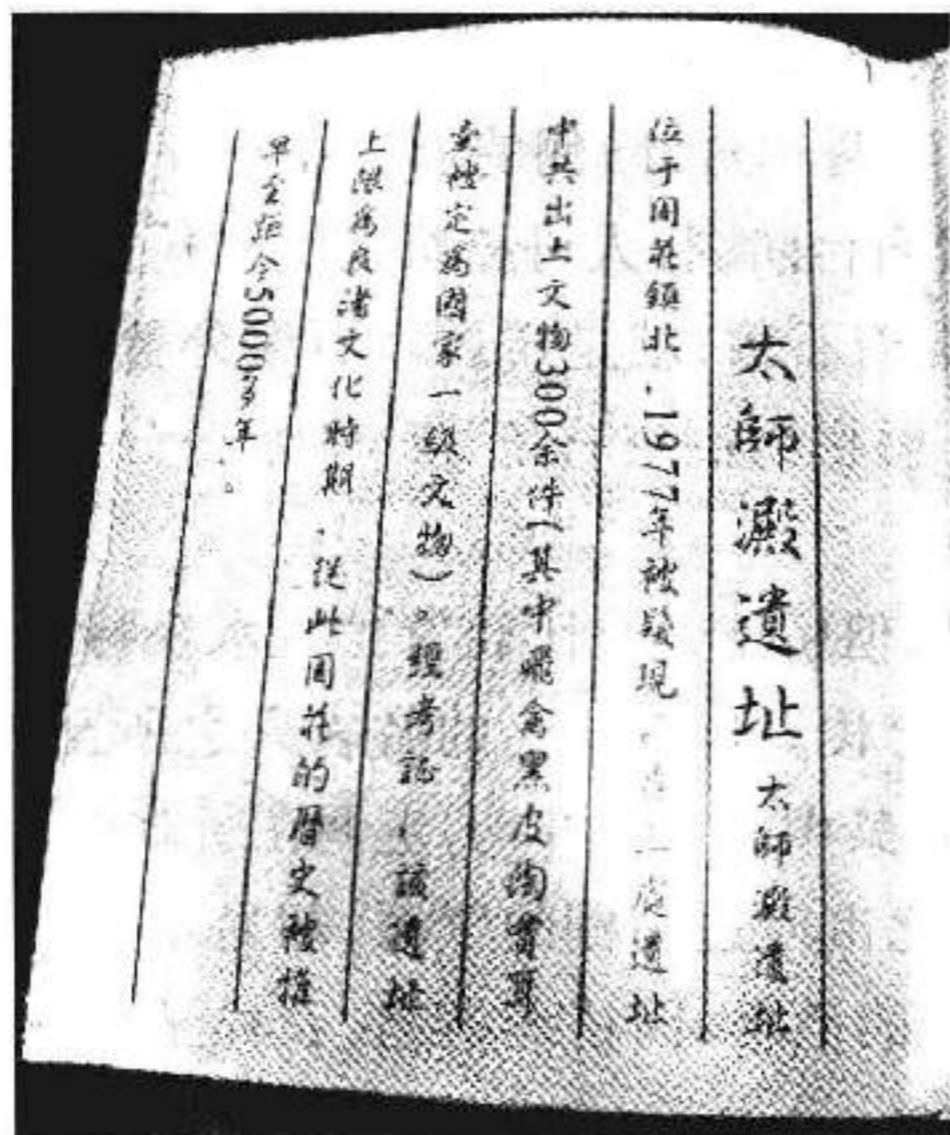 太師澱遺址 太師澱遺址
位于周莊鎮北.1977年被發現.在一處遺址
中共出土文物300余件(其中飛禽黑皮陶貫耳
壺被定為國家一級文物)。經考證,該遺址
上限為良渚文化時期.從此周莊的曆史被推
早至距今5000多年。